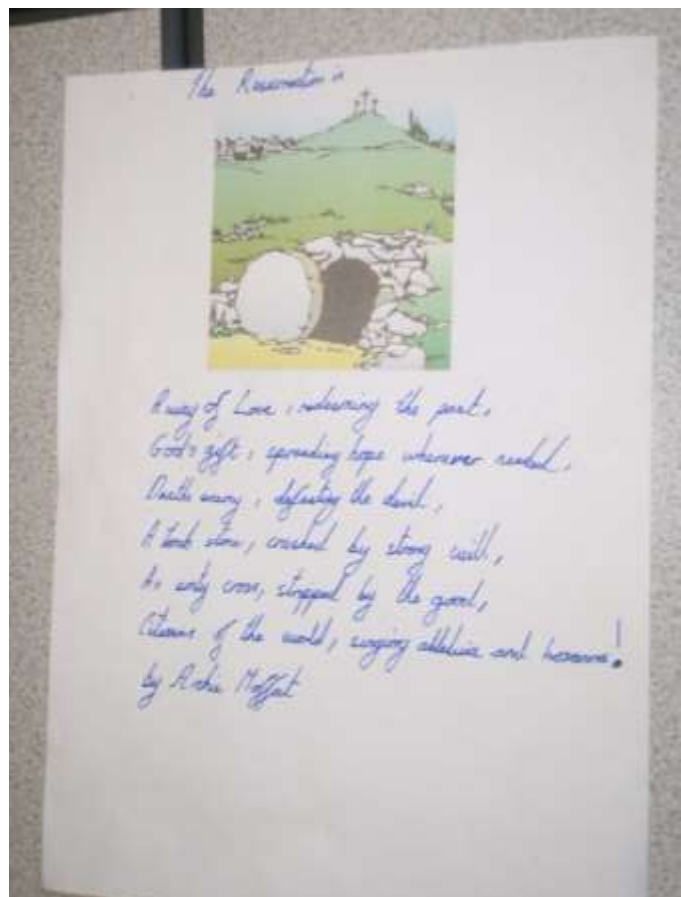 The Resurrection is
A way of Love, redeeming the past,
God's gift, spreading hope wherever needed,
Death's enemy, defeating the devil,
A tomb stone, crushed by strong will,
An empty cross, stopped by the good,
Citizens of the world, singing alleluia and hosanna!
by Archie Moffat